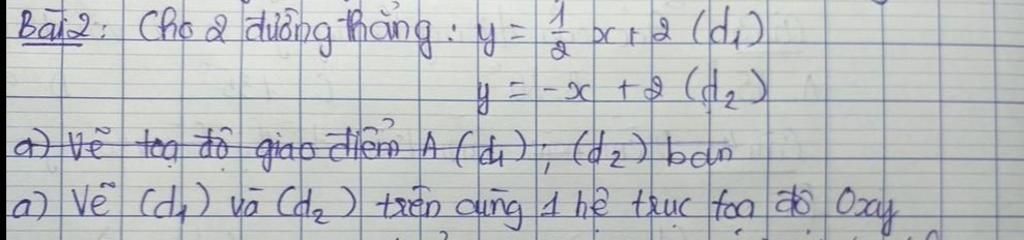 Bài 2: Cho 2 đường thẳng: y = 1/2 x + 2 (d₁)
y = -x + 2 (d₂)
a) Vẽ toạ độ giao điểm A (d₁); (d₂) bản
a) Vẽ (d₁) và (d₂) trên cùng 1 hệ trục toạ độ Oxy